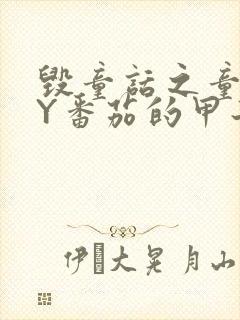 毁童话之童
Y番茄的甲
伊 大晃月山